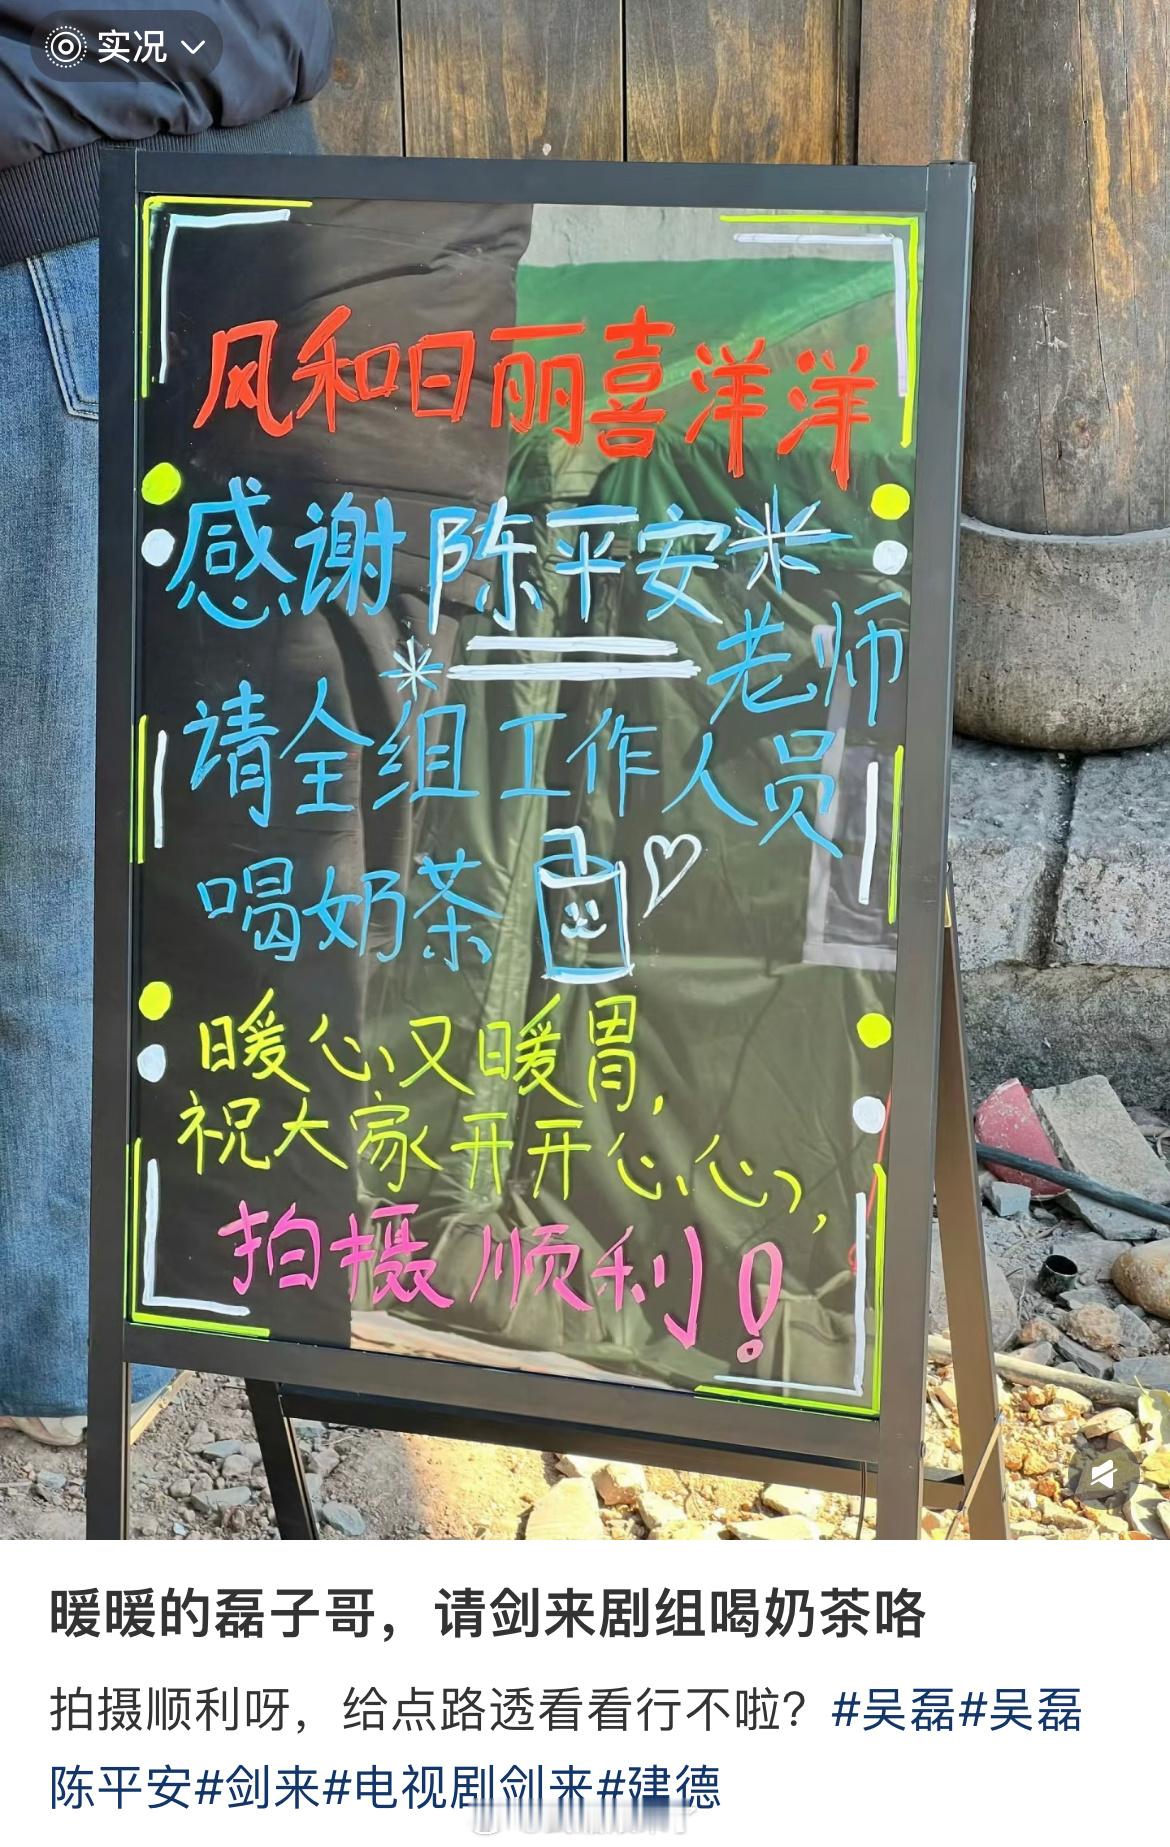 实况
风和日丽喜洋洋
感谢陈平安
老师
请全组工作人员
喝奶茶
暖心又暖胃,
祝大家开开心心,
拍摄顺利!
暖暖的磊子哥，请剑来剧组喝奶茶咯
拍摄顺利呀，给点路透看看行不啦？#吴磊#吴磊
陈平安#剑来#电视剧剑来#建德